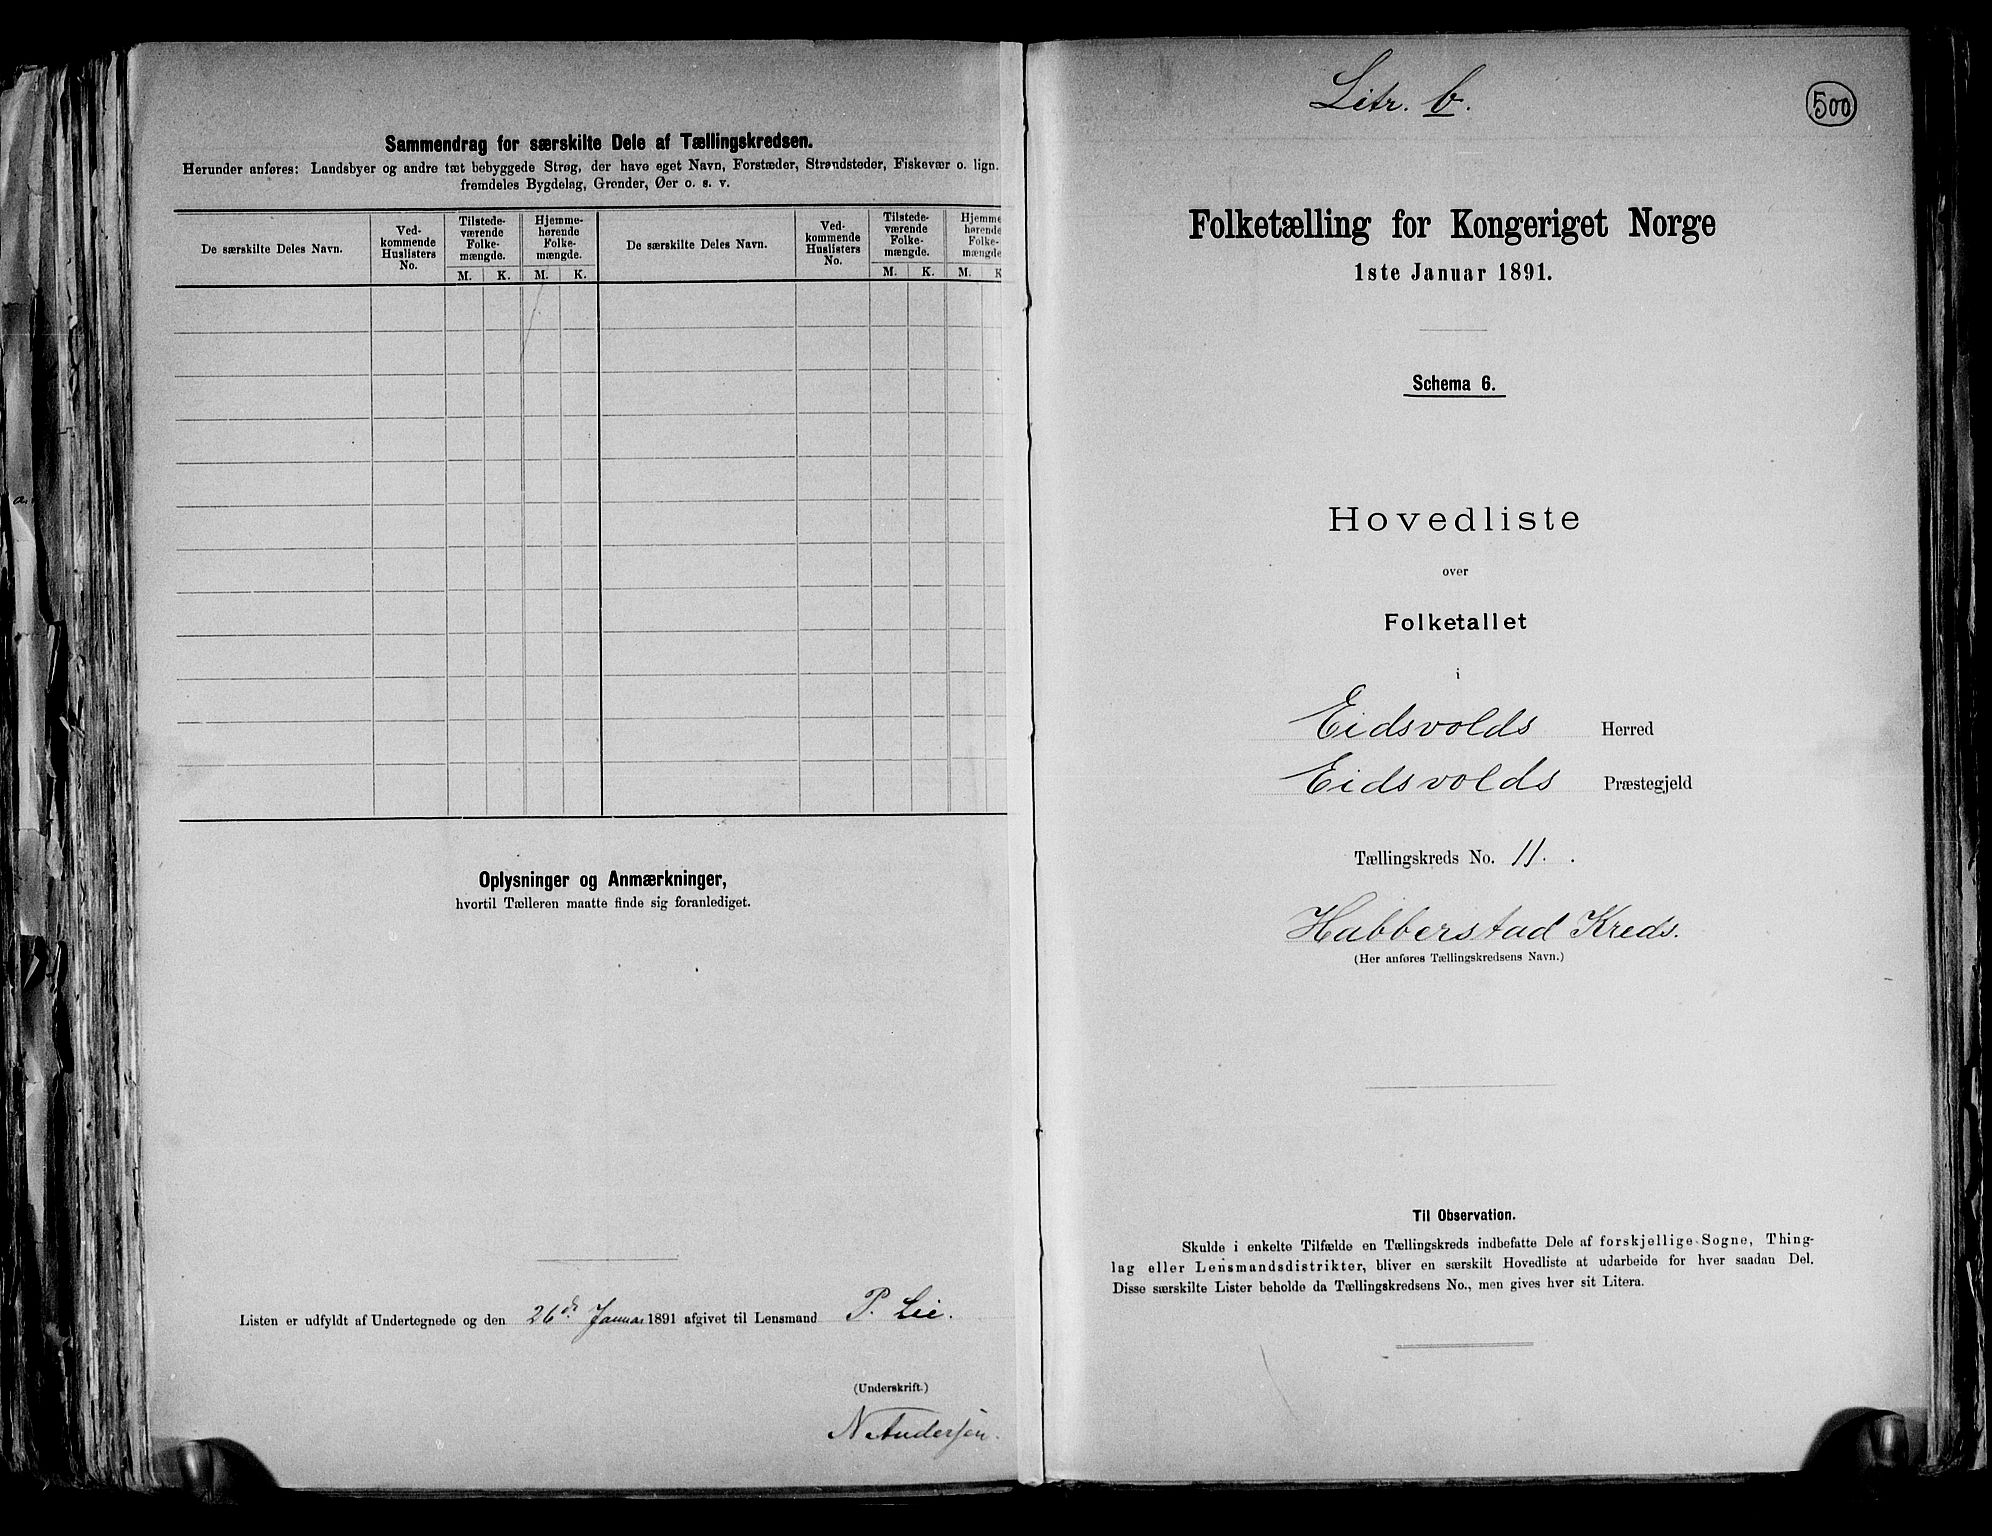 Sammendrag for særskilte Dele af Tællingskredsen.
Herunder anføres: Landsbyer og andre tæt bebyggede Strøg, der have eget Navn, Forstæder, Strandsteder, Fiskevær o. lign.
fremdeles Bygdelag, Grender, Øer o. s. v.
De særskilte Deles Navn.
Ved-
kommende
Huslisters
No.
Tilstede-
værende
Folke-
mængde.
M. K.
Hjemme-
hørende
Folke-
mængde.
M. K.
De særskilte Deles Navn.
Ved-
kommende
Huslisters
No.
Tilstede-
værende
Folke-
mængde.
M. K.
Hjemme-
hørende
Folke-
mængde
M. K
Oplysninger og Anmærkninger,
hvortil Tælleren maatte finde sig foranlediget.
Listen er udfyldt af Undertegnede og den 26de Januar 1891 afgivet til Lensmand P. Lie.
(Underskrift.)
N Andersen.
Litr. b.
500
Folketælling for Kongeriget Norge
1ste Januar 1891.
Schema 6.
Hovedliste
over
Folketallet
i
Eidsvolds Herred
Eidsvolds Præstegjeld
Tællingskreds No. 11.
Habberstad Kreds.
(Her anføres Tællingskredsens Navn.)
Til Observation.
Skulde i enkelte Tilfælde en Tællingskreds indbefatte Dele af forskjellige Sogne, Thing-
lag eller Lensmandsdistrikter, bliver en særskilt Hovedliste at udarbeide for hver saadan Del.
Disse særskilte Lister beholde da Tællingskredsens No., men gives hver sit Litera.